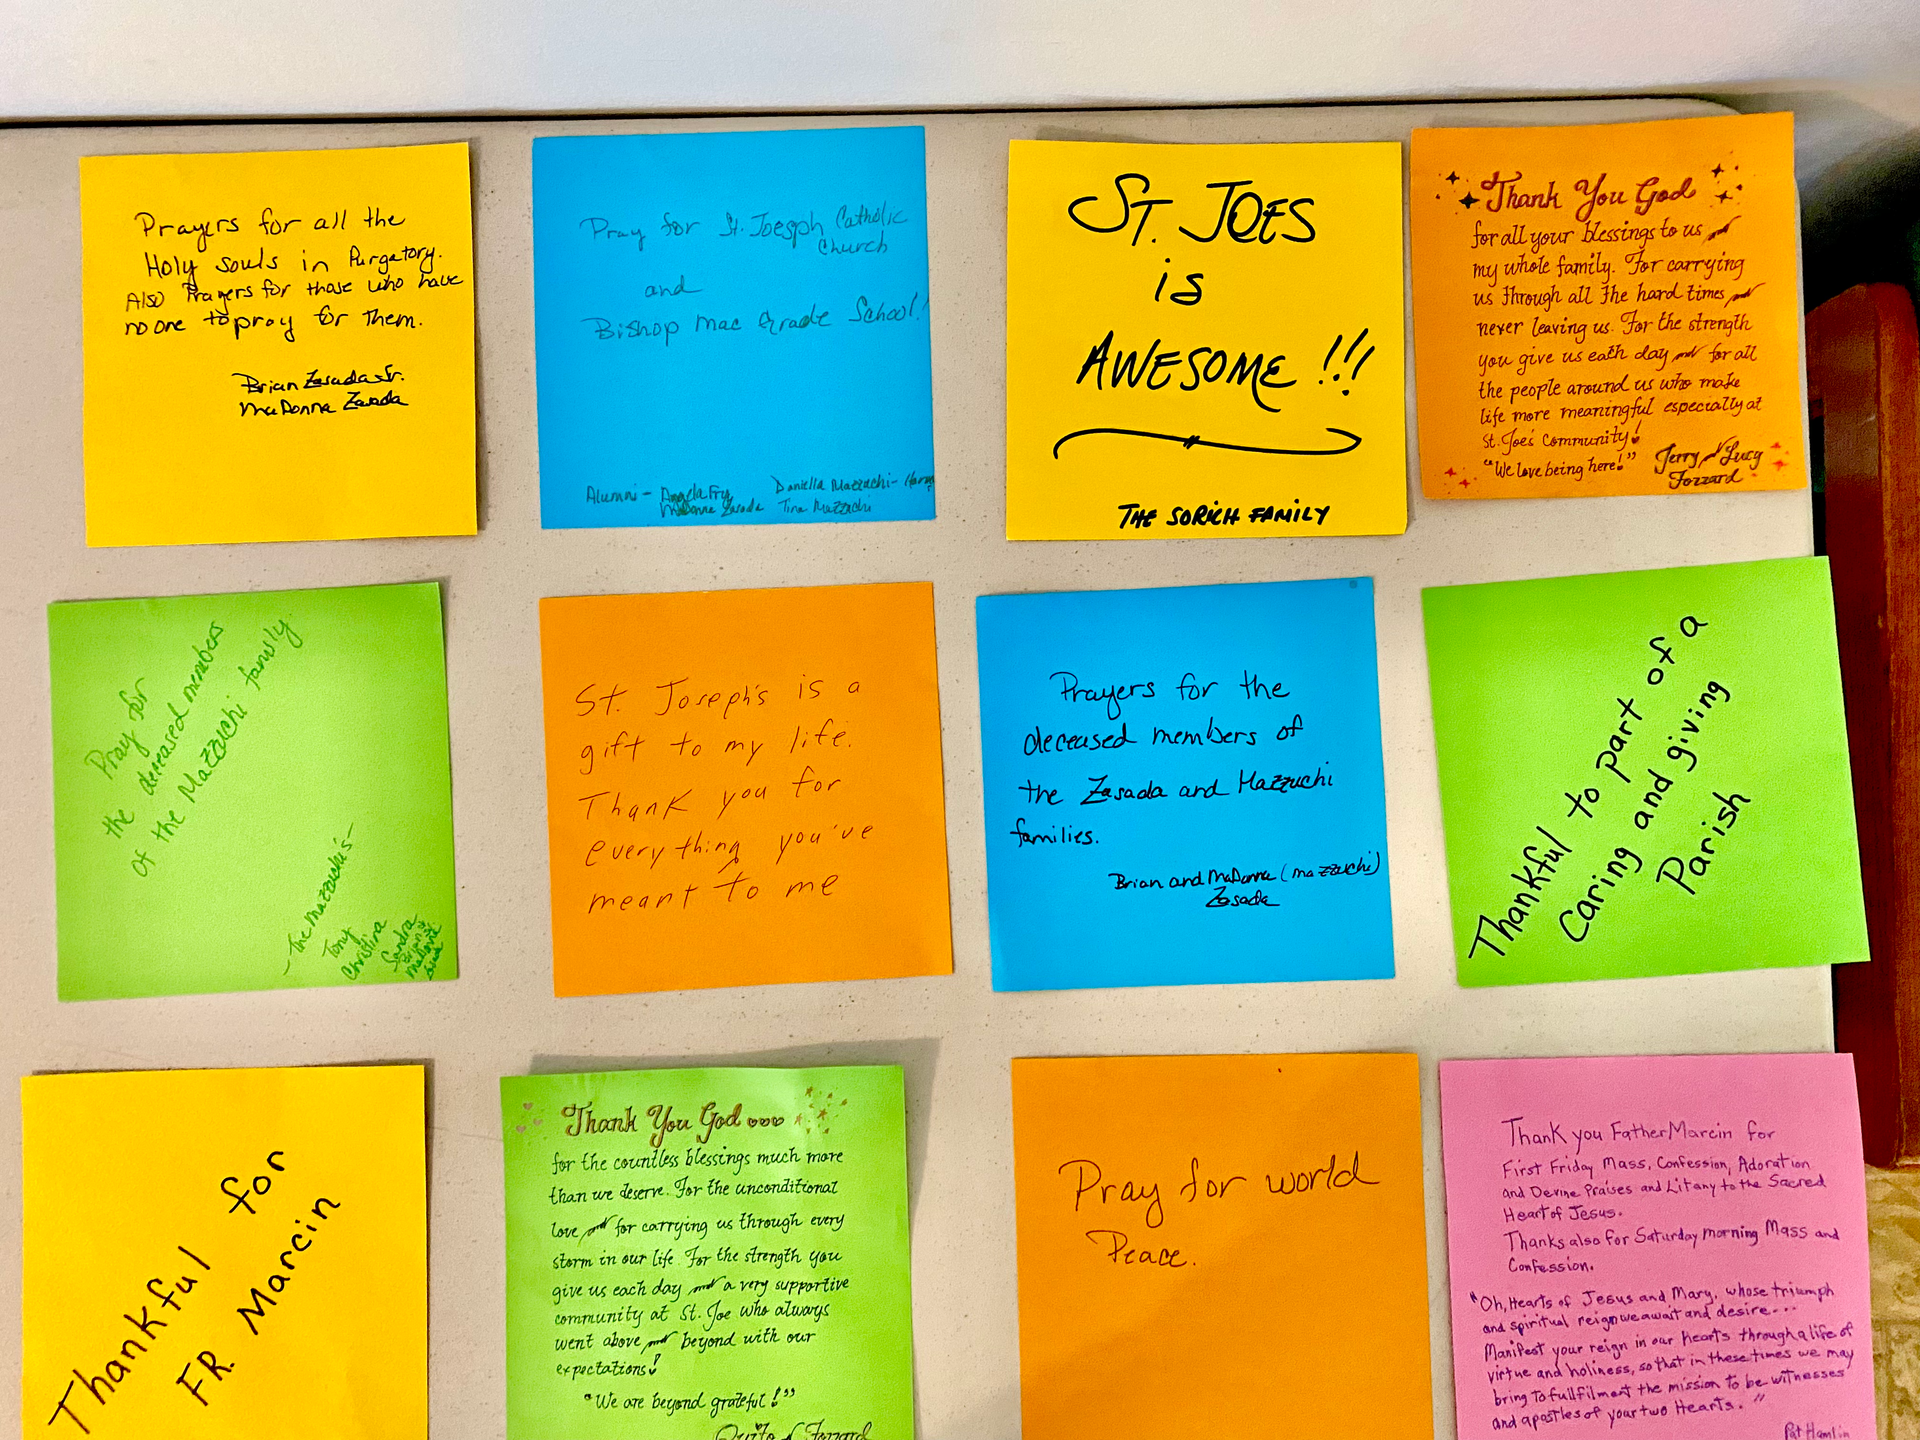 Prayers for all the
Holy souls in Purgatory.
Also Prayers for those who have
no one to pray for them.
Brian Zasada Sr.
MaDonna Zasada
Pray for St. Joesph Catholic
Church
and
Bishop Mac Grade School!
Alumni - Angela Fry Daniella Mazzuchi-
MaDonna Zasada Tina Mazzuchi
ST. JOES
is
AWESOME !!!
THE SORICH FAMILY
Thank You God
for all your blessings to us and
my whole family. For carrying
us through all the hard times and
never leaving us. For the strength
you give us each day and for all
the people around us who make
life more meaningful especially at
St. Joe's Community!
"We love being here!"
Jerry and Lucy
Fozzard
Pray for
the deceased members
of the Mazzuchi family
- The Mazzuchi's -
Tony
Christina
Sandra
Brian &
St. Joseph's is a
gift to my life.
Thank you for
everything you've
meant to me
Prayers for the
deceased members of
the Zasada and Mazzuchi
families.
Brian and MaDonna (Mazzuchi)
Zasada
Thankful to part of a
Caring and giving
Parish
Thankful for
FR. Marcin
Thank You God
for the countless blessings much more
than we deserve. For the unconditional
love and for carrying us through every
storm in our life. For the strength you
give us each day and a very supportive
community at St. Joe who always
went above and beyond with our
expectations!
"We are beyond grateful!"
Fozzard
Pray for world
Peace.
Thank you Father Marcin for
First Friday Mass, Confession, Adoration
and Devine Praises and Litany to the Sacred
Heart of Jesus.
Thanks also for Saturday morning Mass and
Confession.
"Oh, Hearts of Jesus and Mary, whose triumph
and spiritual reign we await and desire...
Manifest your reign in our hearts through a life of
virtue and holiness, so that in these times we may
bring to fullfilment the mission to be witnesses
and apostles of your two Hearts."
Pat Hamlin